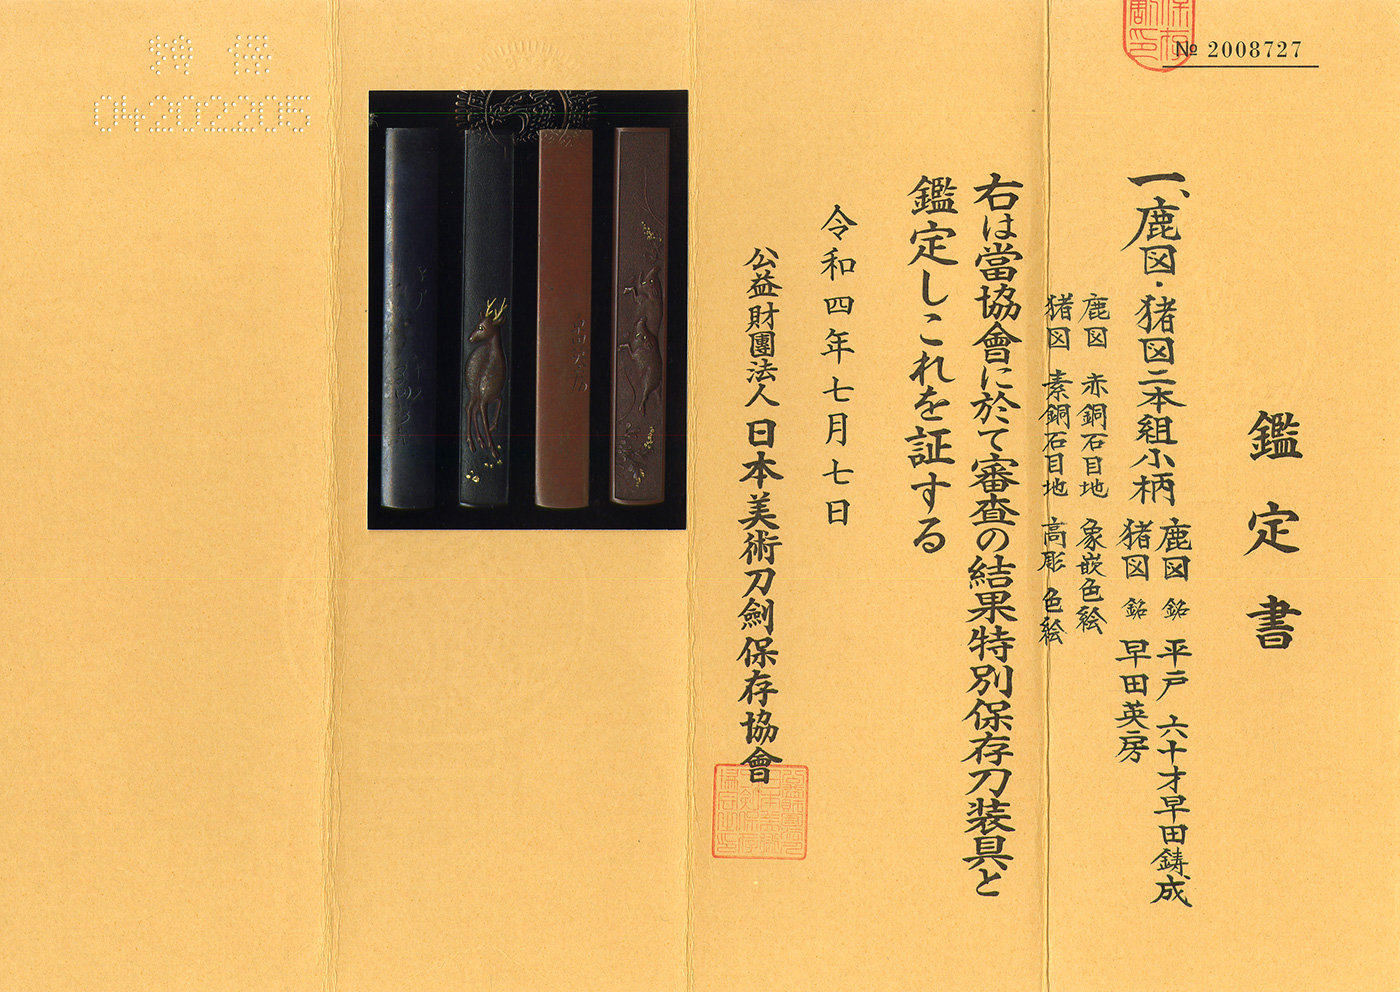 № 2008727
鑑定書
一、鹿図・猪図二本組小柄
鹿図 銘 平戸 六十才早田鋳成
猪図 銘 早田英房
鹿図 赤銅石目地 象嵌色絵
猪図 素銅石目地 高彫色絵
右は當協會に於て審査の結果特別保存刀装具と
鑑定しこれを証する
令和四年七月七日
公益財團法人日本美術刀劍保存協會
特保
04202205